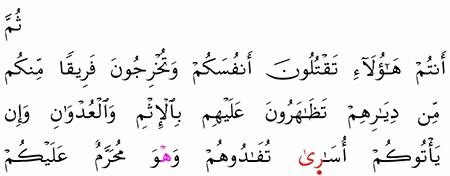 ثُمَّ
أَنتُمْ هَـٰٓؤُلَآءِ تَقْتُلُونَ أَنفُسَكُمْ وَتُخْرِجُونَ فَرِيقًا مِّنكُم
مِّن دِيَـٰرِهِمْ تَظَـٰهَرُونَ عَلَيْهِم بِٱلْإِثْمِ وَٱلْعُدْوَٰنِ وَإِن
يَأْتُوكُمْ أُسَـٰرَىٰ تُفَـٰدُوهُمْ وَهْوَ مُحَرَّمٌ عَلَيْكُمْ